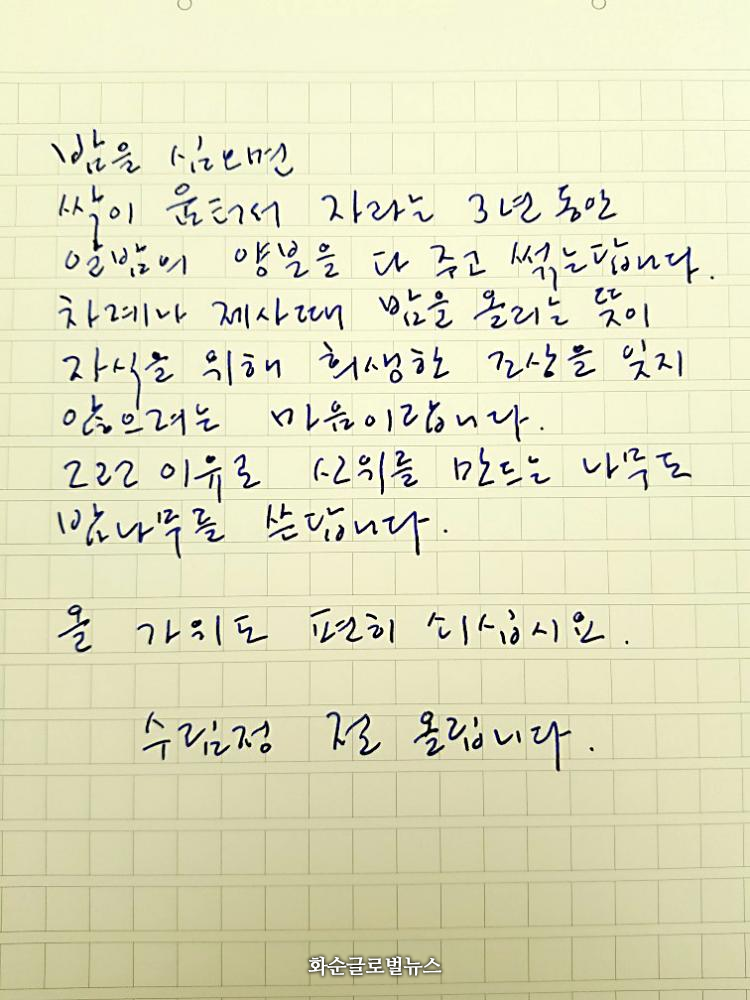 밤을 심으면
싹이 움터서 자라는 3년 동안
알밤의 양분을 다 주고 썪는답니다.
차례나 제사때 밤을 올리는 뜻이
자식을 위해 희생한 조상을 잊지
않으려는 마음이랍니다.
그런 이유로 신위를 만드는 나무도
밤나무를 쓴답니다.
올 가위도 편히 쇠십시요.
수림정 절 올립니다.
화순글로벌뉴스